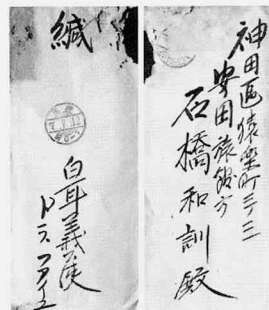 神田區猿楽町二ノ三
安田旅館方
石橋和訓殿
緘
白耳義使
トラファイエ